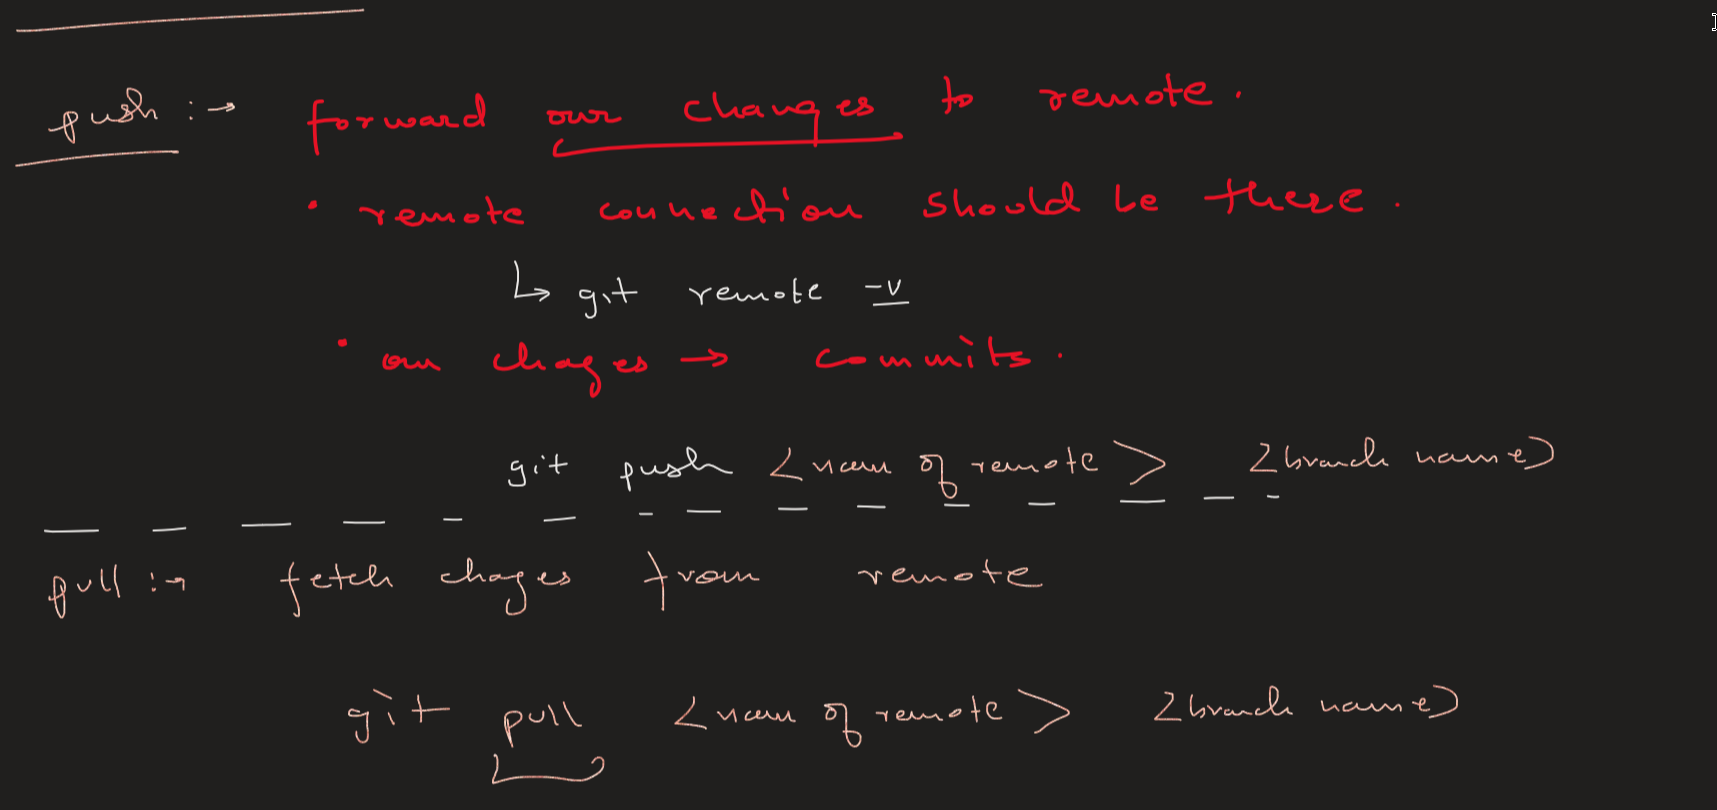 push :→ forward our changes to remote.
• remote connection should be there.
↳ git remote -v
• our chages → commits.
git push <nam of remote> <branch name>
pull :→ fetch chages from remote
git pull <nam of remote> <branch name>